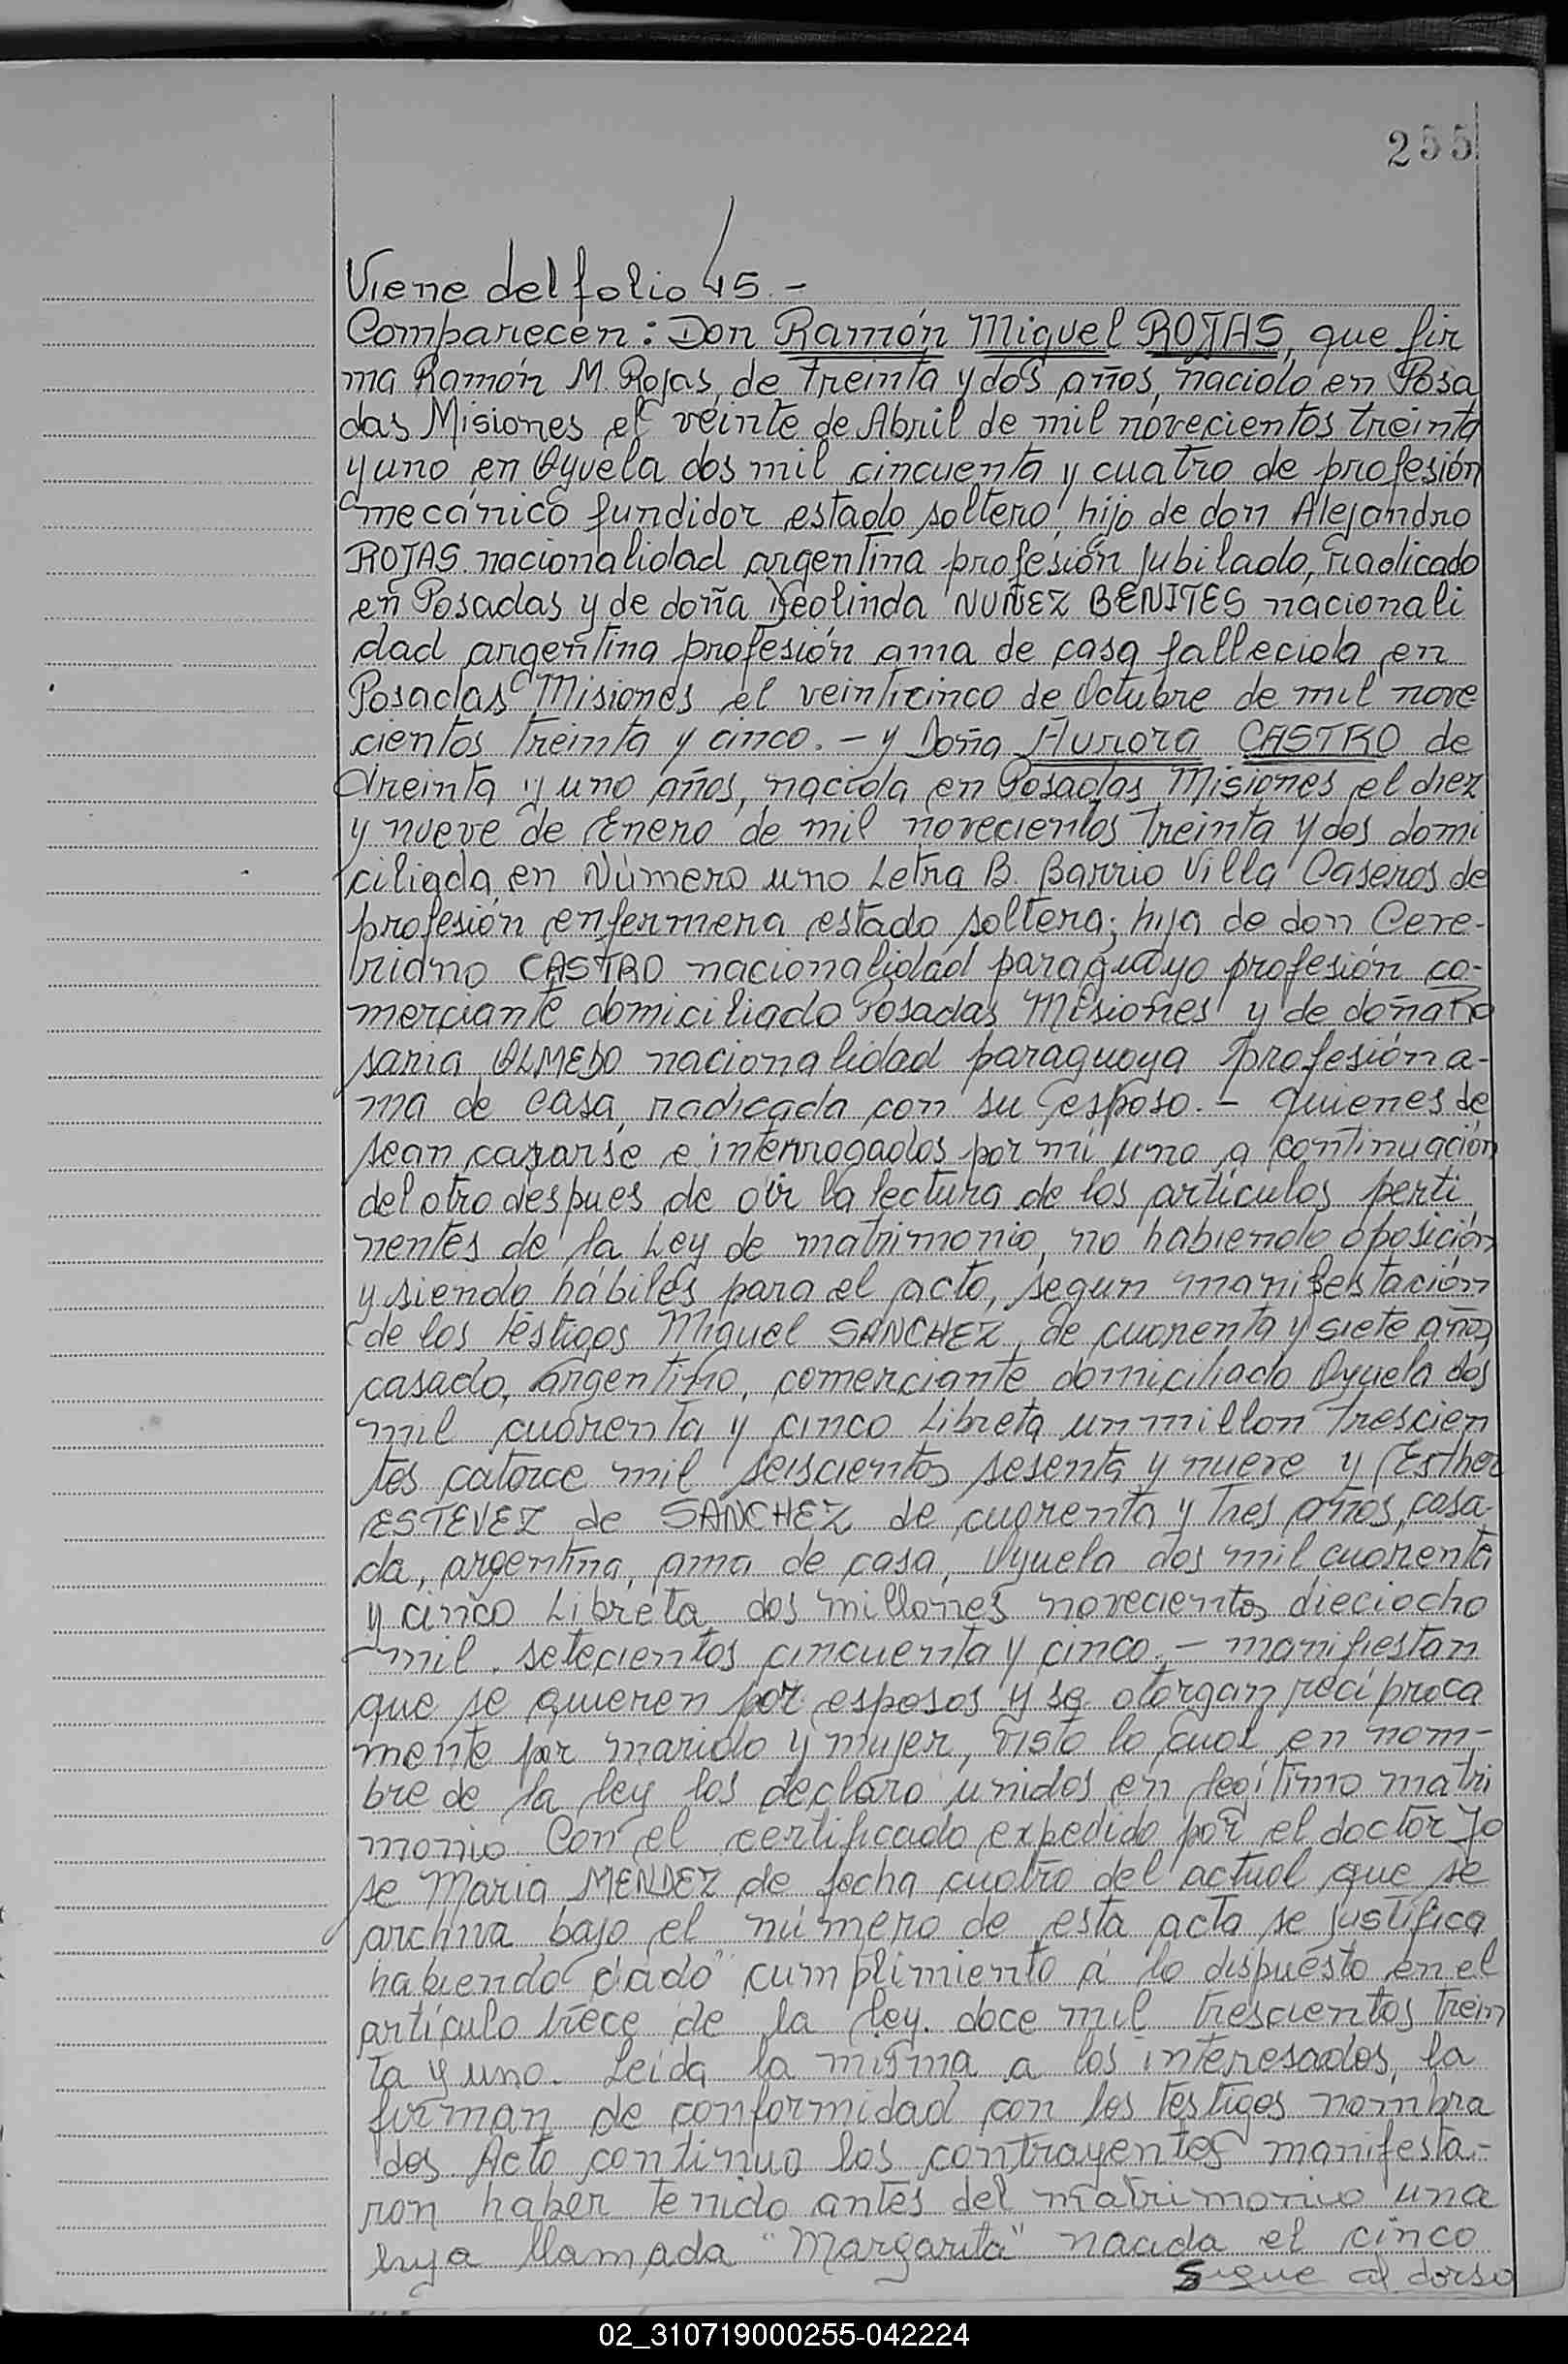 255
Viene del folio 45.-
Comparecen: Don Ramón Miguel ROJAS, que fir
ma Ramón M. Rojas, de treinta y dos años, nacido en Posa
das Misiones el veinte de Abril de mil novecientos treinta
y uno en Oyuela dos mil cincuenta y cuatro de profesión
mecánico fundidor estado soltero, hijo de don Alejandro
ROJAS nacionalidad argentina profesión jubilado, radicado
en Posadas y de doña Deolinda NUÑEZ BENITES nacionali
dad argentina profesión ama de casa fallecida en
Posadas Misiones el veinticinco de Octubre de mil nove
cientos treinta y cinco.- y Doña Aurora CASTRO de
treinta y uno años, nacida en Posadas Misiones el diez
y nueve de Enero de mil novecientos treinta y dos domi
ciliada en Número uno Letra B. Barrio Villa Caseros de
profesión enfermera estado soltera; hija de don Cere-
briano CASTRO nacionalidad paraguayo profesión co-
merciante domiciliado Posadas Misiones y de doña Ro
saria OLMEDO nacionalidad paraguaya profesión a-
ma de casa, radicada con su esposo.- quienes de
sean casarse e interrogados por mí uno a continuación
del otro despues de oir la lectura de los artículos perti
nentes de la Ley de matrimonio, no habiendo oposición
y siendo hábiles para el acto, segun manifestación
de los testigos Miguel SANCHEZ, de cuarenta y siete años,
casado, argentino, comerciante domiciliado Oyuela dos
mil cuarenta y cinco Libreta un millon trescien
tos catorce mil seiscientos sesenta y nueve y Esther
ESTEVEZ de SANCHEZ de cuarenta y tres años, casa-
da, argentina, ama de casa, Oyuela dos mil cuarenta
y cinco Libreta dos millones novecientos dieciocho
mil setecientos cincuenta y cinco.- manifiestan
que se quieren por esposos y se otorgan recíproca
mente por marido y mujer, visto lo cual en nom-
bre de la ley los declaro unidos en legítimo matri
monio Con el certificado expedido por el doctor Jo
se Maria MENDEZ de fecha cuatro del actual que se
archiva bajo el número de esta acta se justifica
habiendo dado cumplimiento a lo dispuesto en el
artículo trece de la ley. doce mil trescientos trein
ta y uno. Leída la misma a los interesados, la
firman de conformidad con los testigos nombra
dos Acto continuo los contrayentes manifesta-
ron haber tenido antes del matrimonio una
hija llamada "Margarita" nacida el cinco
Sigue al dorso
02_310719000255-042224